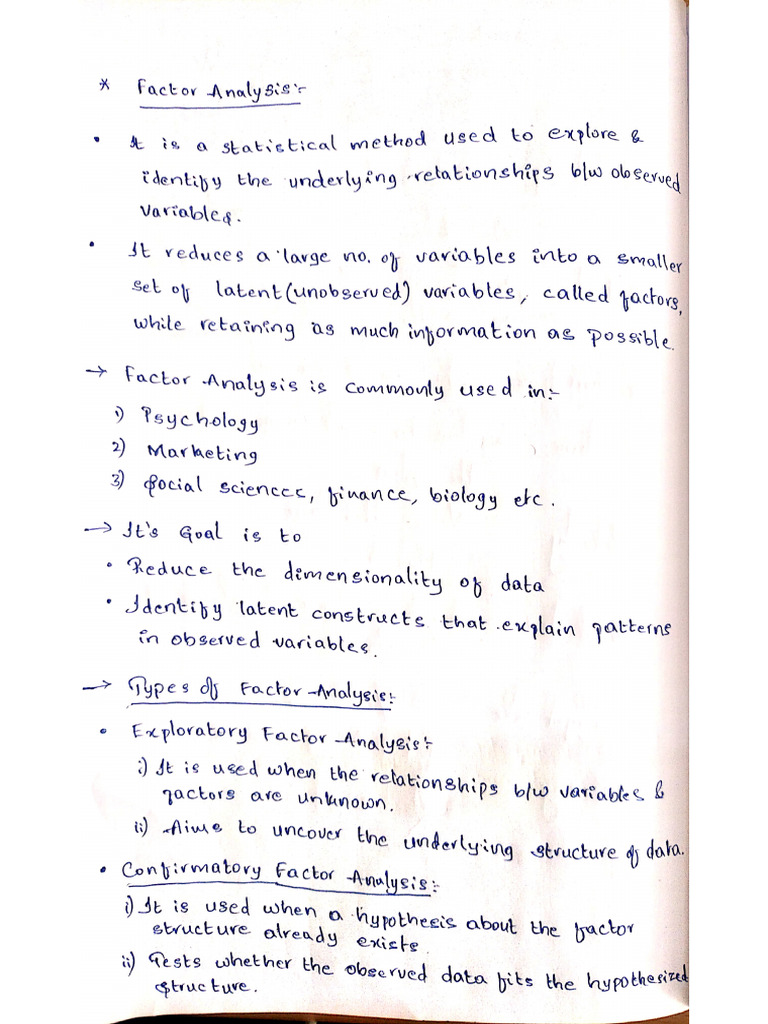 * Factor Analysis:-
• It is a statistical method used to explore &
identify the underlying relationships b/w observed
variables.
• It reduces a large no. of variables into a smaller
set of latent (unobserved) variables, called factors,
while retaining as much information as possible.
→ Factor Analysis is commonly used in:-
1) Psychology
2) Marketing
3) Social sciences, finance, biology etc.
→ It's Goal is to
• Reduce the dimensionality of data
• Identify latent constructs that explain patterns
in observed variables.
→ Types of Factor Analysis:-
• Exploratory Factor Analysis:-
i) It is used when the relationships b/w variables &
factors are unknown.
ii) Aims to uncover the underlying structure of data.
• Confirmatory Factor Analysis:-
i) It is used when a hypothesis about the factor
structure already exists.
ii) Tests whether the observed data fits the hypothesized
structure.